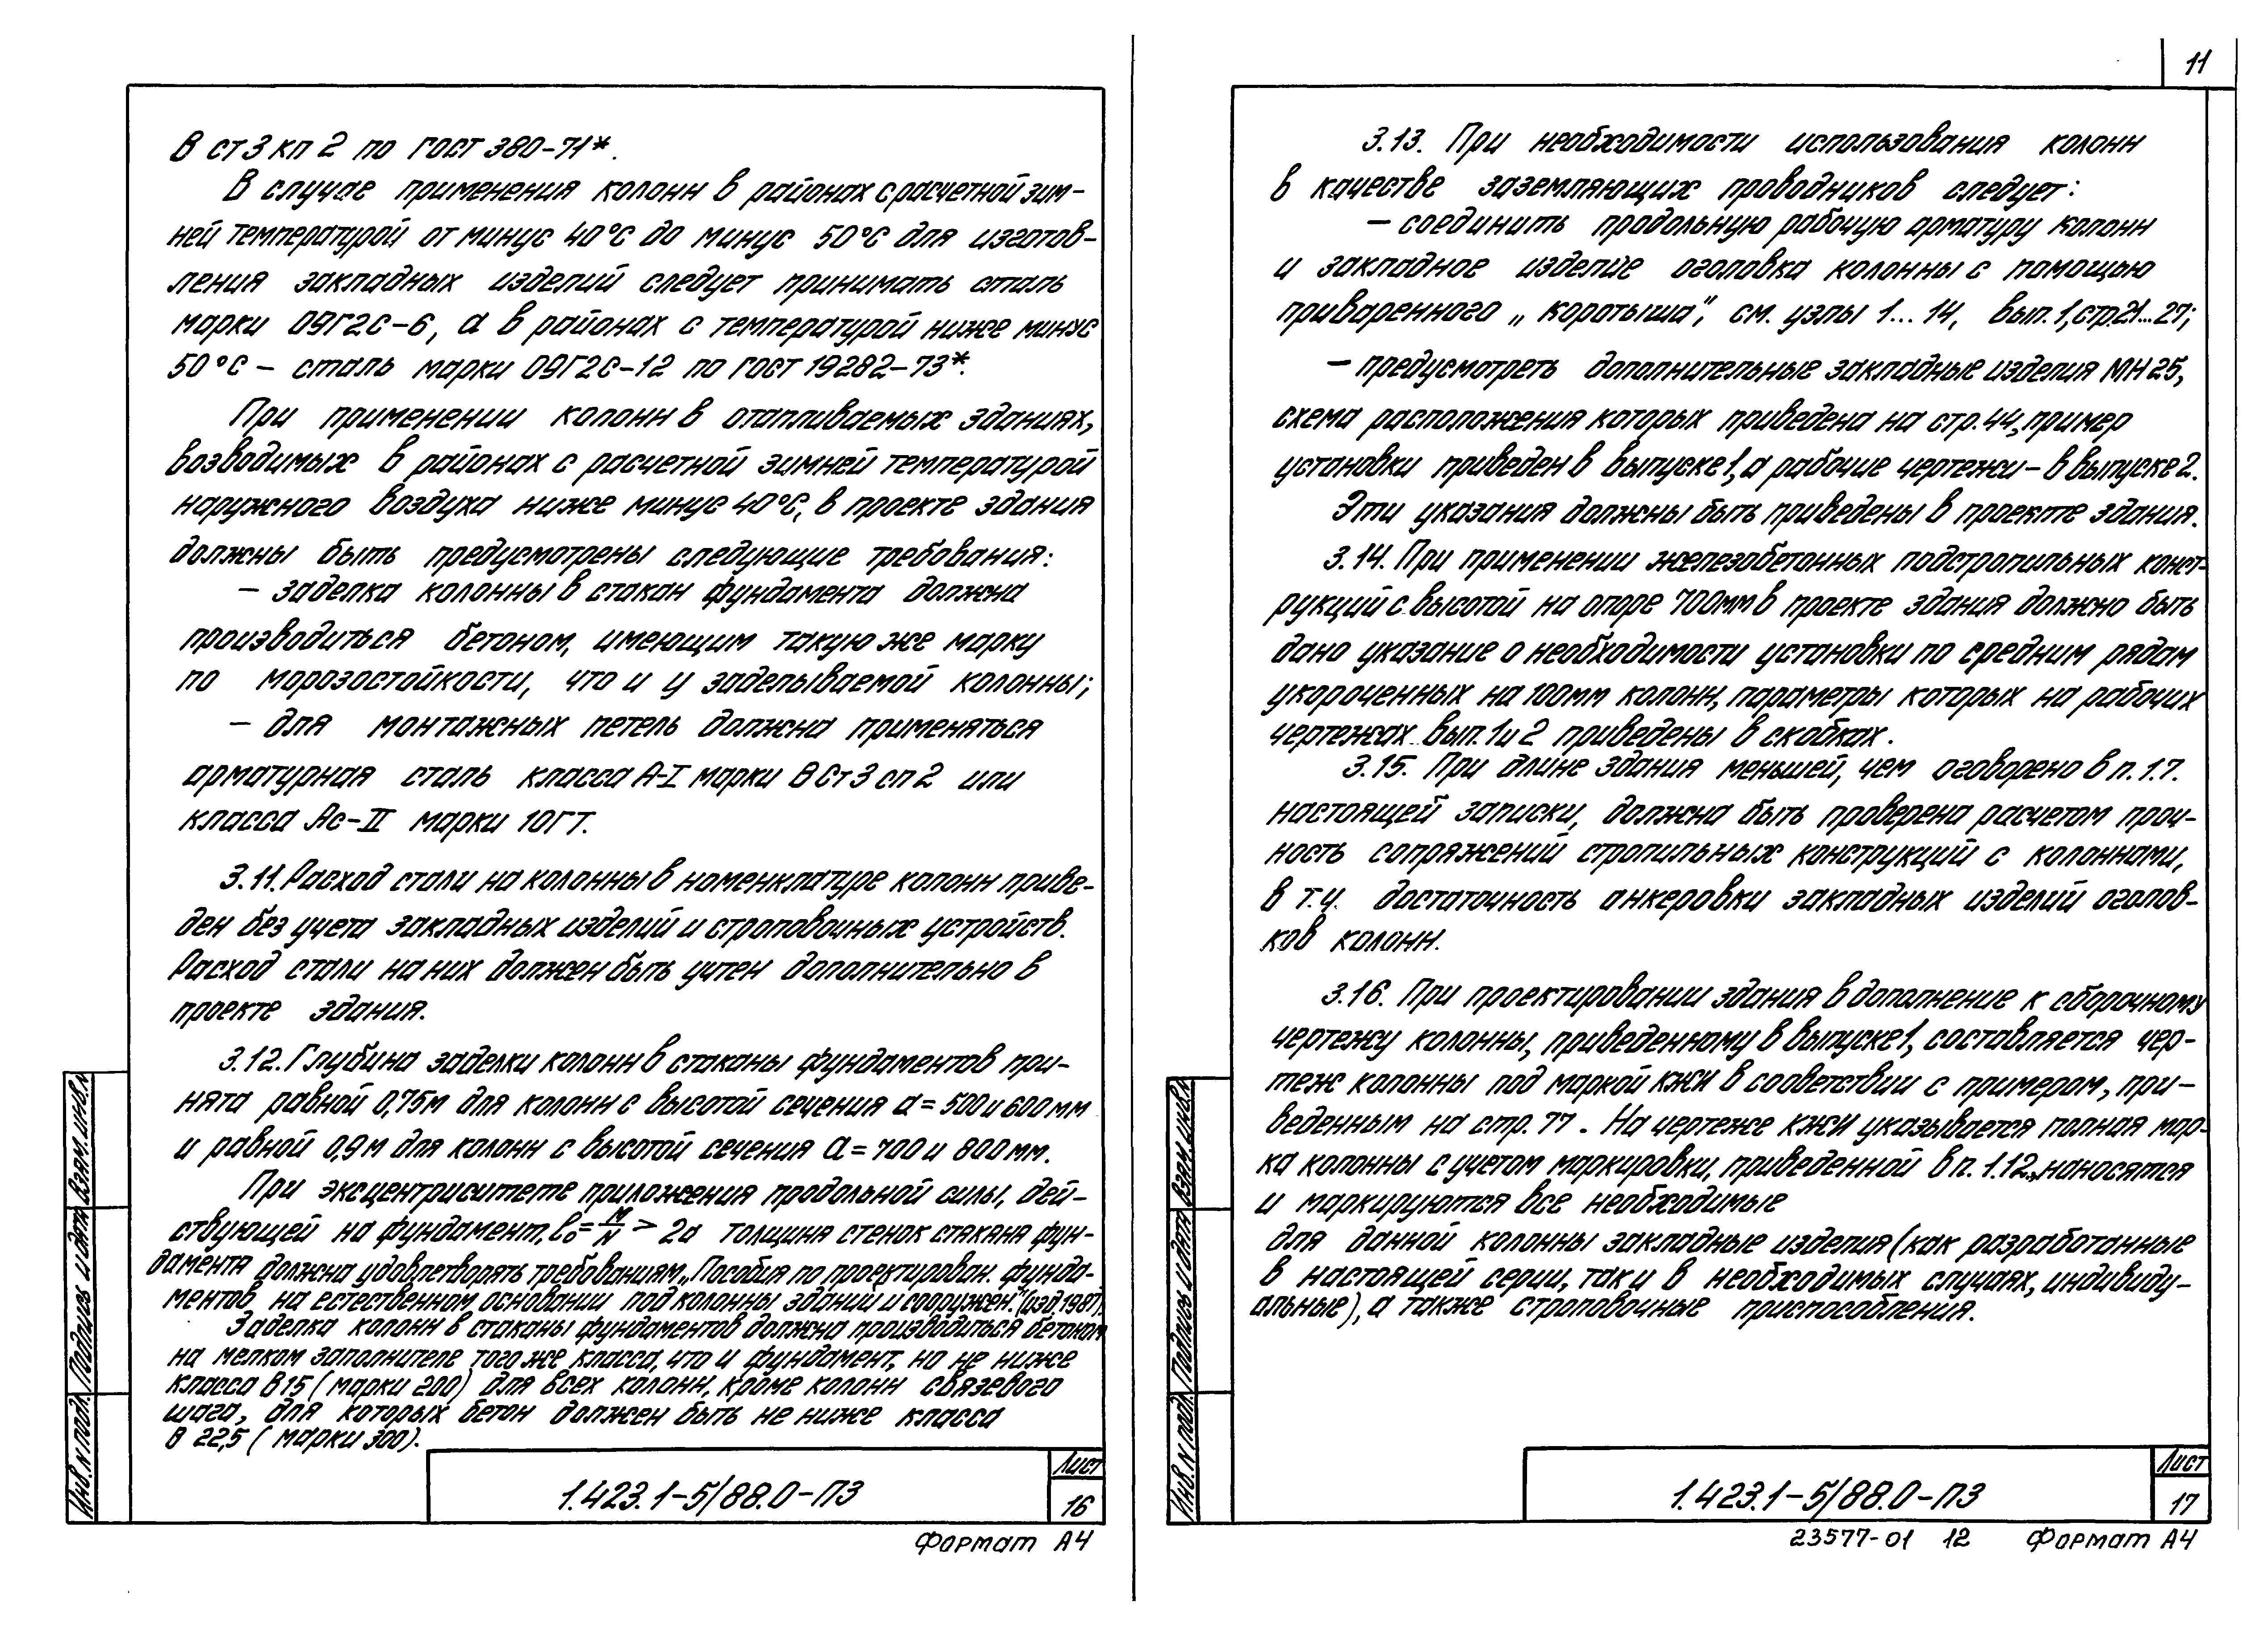 11
В ст3 кп 2 по ГОСТ 380-71*.
В случае применения колонн в районах с расчетной зим-
ней температурой от минус 40°С до минус 50°С для изготов-
ления закладных изделий следует принимать сталь
марки 09Г2С-6, а в районах с температурой ниже минус
50°С – сталь марки 09Г2С-12 по ГОСТ 19282-73*.
При применении колонн в отапливаемых зданиях,
возводимых в районах с расчетной зимней температурой
наружного воздуха ниже минус 40°С, в проекте здания
должны быть предусмотрены следующие требования:
– заделка колонны в стакан фундамента должна
производиться бетоном, имеющим такую же марку
по морозостойкости, что и у заделываемой колонны;
– для монтажных петель должна применяться
арматурная сталь класса А-I марки ВСт3сп2 или
класса Ас-II марки 10ГТ.
3.11. Расход стали на колонны в номенклатуре колонн приве-
ден без учета закладных изделий и строповочных устройств.
Расход стали на них должен быть учтен дополнительно в
проекте здания.
3.12. Глубина заделки колонн в стаканы фундаментов при-
нята равной 0,75м для колонн с высотой сечения а = 500 и 600мм
и равной 0,9м для колонн с высотой сечения а = 700 и 800мм.
При эксцентриситете приложения продольной силы, дей-
ствующей на фундамент, e₀ = M/N > 2а толщина стенок стакана фун-
дамента должна удовлетворять требованиям „Пособия по проектирован. фунда-
ментов на естественном основании под колонны зданий и сооружен." (изд.1987).
Заделка колонн в стаканы фундаментов должна производиться бетоном
на мелком заполнителе того же класса, что и фундамент, но не ниже
класса В15 (марки 200) для всех колонн, кроме колонн связевого
шага, для которых бетон должен быть не ниже класса
В 22,5 (марки 300).
Инв.N подл. Подпись и дата Взам.инв.N
1.423.1-5/88.0-ПЗ
Лист
16
Формат А4
3.13. При необходимости использования колонн
в качестве заземляющих проводников следует:
– соединить продольную рабочую арматуру колонн
и закладное изделие оголовка колонны с помощью
приваренного „коротыша", см. узлы 1...14, вып.1, стр.21...27;
– предусмотреть дополнительные закладные изделия МН25,
схема расположения которых приведена на стр.44, пример
установки приведен в выпуске 1, а рабочие чертежи – в выпуске 2.
Эти указания должны быть приведены в проекте здания.
3.14. При применении железобетонных подстропильных конст-
рукций с высотой на опоре 700мм в проекте здания должно быть
дано указание о необходимости установки по средним рядам
укороченных на 100мм колонн, параметры которых на рабочих
чертежах вып. 1 и 2 приведены в скобках.
3.15. При длине здания меньшей, чем оговорено в п. 1.7.
настоящей записки, должна быть проверена расчетом проч-
ность сопряжений стропильных конструкций с колоннами,
в т.ч. достаточность анкеровки закладных изделий оголов-
ков колонн.
3.16. При проектировании здания в дополнение к сборочному
чертежу колонны, приведенному в выпуске 1, составляется чер-
теж колонны под маркой КЖИ в соответствии с примером, при-
веденным на стр. 77. На чертеже КЖИ указывается полная мар-
ка колонны с учетом маркировки, приведенной в п. 1.12., наносятся
и маркируются все необходимые
для данной колонны закладные изделия (как разработанные
в настоящей серии, так и в необходимых случаях, индивиду-
альные), а также строповочные приспособления.
Инв.N подл. Подпись и дата Взам.инв.N
1.423.1-5/88.0-ПЗ
Лист
17
23577-01 12 Формат А4